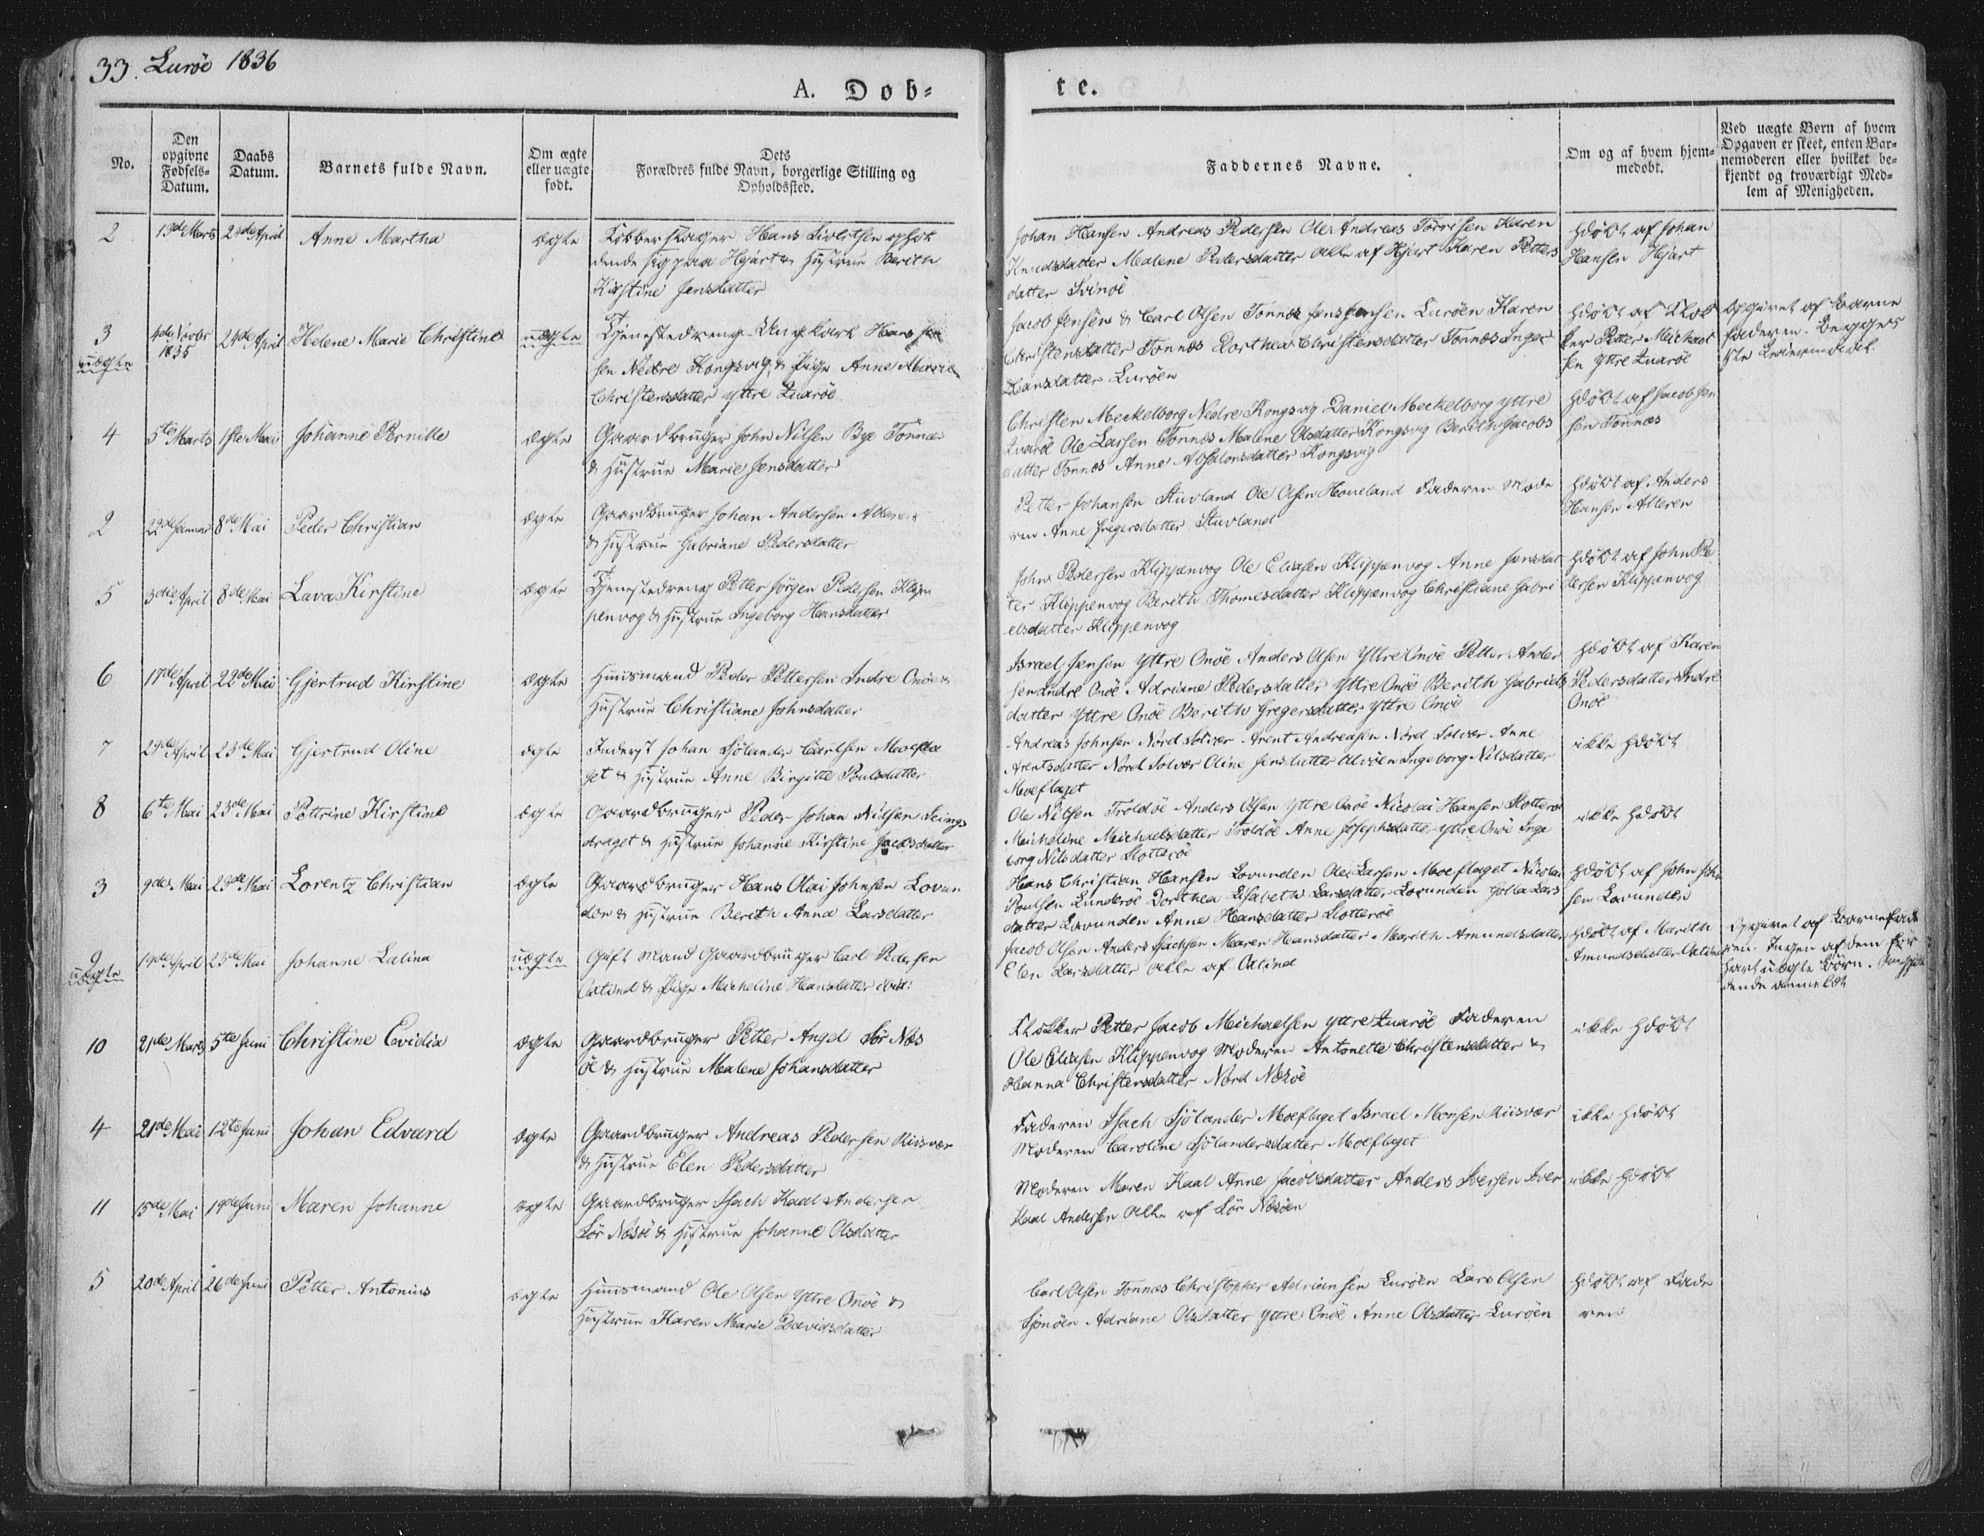 33. Lurøe 1836
A. Døb=
te.
No.
Den opgivne Fødsels-Datum.
Daabs Datum.
Barnets fulde Navn.
Om ægte eller uægte født.
Dets Forældres fulde Navn, borgerlige Stilling og Opholdssted.
Faddernes Navne.
Om og af hvem hjemmedøbt.
Ved uægte Børn af hvem Opgaven er skeet, enten Barnemoderen eller hvilket bekjendt og troværdigt Medlem af Menigheden.
2 13de Marts 24de April Anne Martha ægte
Hans
dende sig paa Hjart & Hustrue Berith
Kirstine Jensdatter
Johan Hansen Andreas Pedersen Ole Andreas Karen
Knudsdatter Malene Pedersdatter Alle af Hjart Karen Petters
datter Svinøe
Hdøbt af Johan
Hansen Hjart
3 uægte 4de Novbr 1835 24de April Helene Marie Christine uægte
Tjenestedreng Ungkarl Hans
sen Nedre Kongsvig & Pige Anne Marie
Christensdatter Yttre Qvarøe
Jacob Jensen & Carl Olsen Tonnes Jens Jensen Lurøen Karen
Christensdatter Tonnes Dorthea Christensdatter Tonnes Inger
Hansdatter Lurøen
Hdøbt af Klok
ker Petter Michael
sen Yttre Qvarøe
Opgivet af Barne
faderen. Begges
1ste Leiermaal
4 5te Marts 1ste Mai Johanne Pernille ægte
Gaardbruger John Nilsen Bye Tonnes
& Hustrue Marie Jensdatter
Christen Meckelborg Nedre Kongsvig Daniel Meckelborg Yttre
Qvarøe Ole Larsen Tonnes Malene Olsdatter Kongsvig Berith Jacobs
datter Tonnes Anne Absalonsdatter Kongsvig
Hdøbt af Jacob Jen
sen Tonnes
2 22de Januar 8de Mai Peder Christian ægte
Gaardbruger Johan Andersen
& Hustrue Gabriane Pedersdatter
Petter Johansen Stuvland Ole Olsen Houeland Faderen Mode
ren Anne Gregersdatter Stuvland
Hdøbt af Anders
Hansen Alteren
5 3die April 8de Mai Lava Kirstine ægte
Tjenestedreng Petter Jørgen Pedersen Klip
penvog & Hustrue Ingeborg Hansdatter
John Pedersen Klippenvog Ole Eliasen Klippenvog Anne Jensdat
ter Klippenvog Berith Thomesdatter Klippenvog Christiane Gabri
elsdatter Klippenvog
Hdøbt af John Pe
dersen Klippenvog
6 17de April 22de Mai Gjertrud Kirstine ægte
Huusmand Peder Pettersen Indre Onøe &
Hustrue Christiane Johnsdatter
Israel Jensen Yttre Onøe Anders Olsen Yttre Onøe Petter Ander
sen Indre Onøe Adriane Pedersdatter Yttre Onøe Berith Gabriels
datter Yttre Onøe Berith Gregersdatter Yttre Onøe
Hdøbt af Karen
Pedersdatter Indre
Onøe
7 29de April 23de Mai Gjertrud Oline ægte
Inderst Johan Sjølander Carlsen Moefla
get & Hustrue Anne Birgitte Poulsdatter
Andreas Johnsen Nord Solvær Arent Andreasen Nord Solvær Anne
Arentsdatter Nord Solvær Oline Jensdatter Ingeborg Nilsdatter
Moeflaget
ikke Hdøbt
8 6te Mai 23de Mai Pettrine Kirstine ægte
Gaardbruger Peder Johan Nilsen
draget & Hustrue Johanne Kirstine Jacobsdatter
Ole Nilsen Troldøe Anders Olsen Yttre Onøe Nicolai Hansen Slotterøe
Micheline Michaelsdatter Troldøe Anne Josephsdatter Yttre Onøe Inge
borg Nilsdatter Slotterøe
ikke Hdøbt
3 9de Mai 23de Mai Lorentz Christian ægte
Gaardbruger Hans Olai Johnsen Lovun
den & Hustrue Berith Anna Larsdatter
Hans Christian Hansen Lovunden Ole Larsen Moeflaget Nicolai
Poulsen Lunderøe Dorthea Elisabeth Larsdatter Lovunden Lars
datter Lovunden Anne Hansdatter Slotterøe
Hdøbt af John
sen Lovunden
9 uægte 19de April 23de Mai Johanne Lalina uægte
Gift Mand Gaardbruger Carl Pedersen
& Pige Micheline Hansdatter ibid:
Jacob Olsen Anders Isachsen Maren Hansdatter Marith Amundsdatter
Elen Larsdatter Alle af
Hdøbt af Marith
Amundsdatter
Opgivet af Barnefade
ren. Ingen af dem før
havt uægte Børn.
dende anmeldt
10 21de Marts 5te Juni Christine Evidia ægte
Gaardbruger Petter Angel Sør Næs
øe & Hustrue Malene Johansdatter
Klokker Petter Jacob Michaelsen Yttre Qvarøe Faderen
Ole Eliasen Klippenvog Moderen Antonette Christensdatter &
Hanna Christensdatter Nord Nesøe
ikke Hdøbt
4 21de Mai 12te Juni Johan Edvard ægte
Gaardbruger Andreas Pedersen Riisvær
& Hustrue Elen Pedersdatter
Faderen Isach Sjølander Moeflaget Israel Morsen Riisvær
Moderen Caroline Sjølandersdatter Moeflaget
ikke Hdøbt
11 15de Mai 19de Juni Maren Johanne ægte
Gaardbruger Isach Kaal Andersen
Sør Nesøe & Hustrue Johanne Olsdatter
Moderen Maren Kaal Anne Jacobsdatter Anders Iversen Iver
Kaal Andersen Alle af Sør Nesøen
ikke Hdøbt
5 20de April 26de Juni Petter Antonius ægte
Huusmand Ole Olsen Yttre Onøe &
Hustrue Karen Marie Davidsdatter
Carl Olsen Tonnes Christopher Adriansen Lurøen Lars Olsen
Sjonøen Adriane Olsdatter Yttre Onøe Anne Olsdatter Lurøen
Hdøbt af Fade
ren